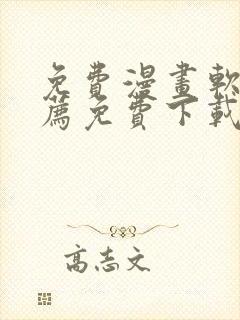 免費漫畫軟
薦免費下載
高志文